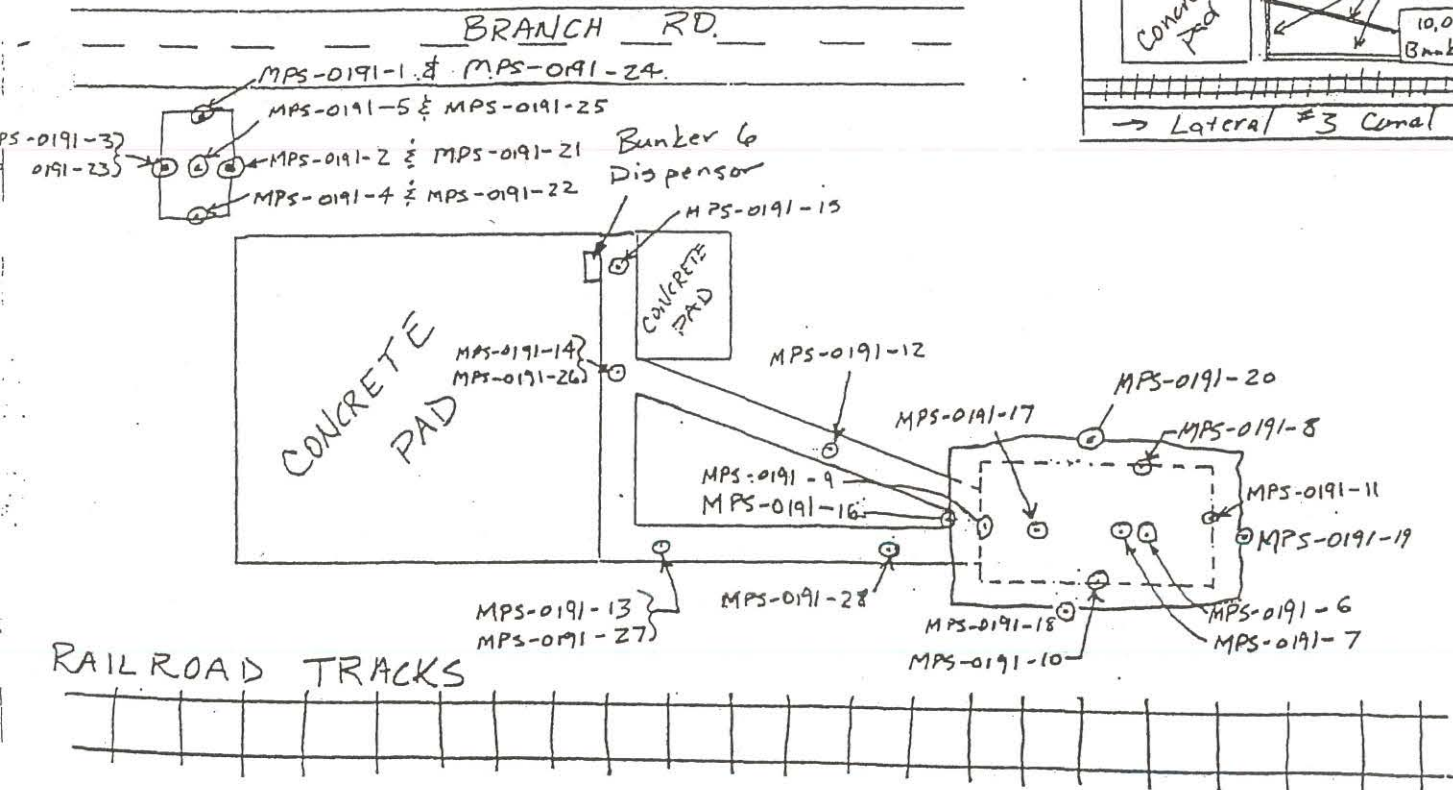 BRANCH RD.
Concre
Pad
10,0
Bunk
→ Lateral #3 Canal
MPS-0191-1 & MPS-0191-24.
MPS-0191-5 & MPS-0191-25
PS-0191-3
0191-23
MPS-0191-2 & MPS-0191-21
MPS-0191-4 & MPS-0191-22
Bunker 6
Dispensor
MPS-0191-15
CONCRETE
PAD
CONCRETE
PAD
MPS-0191-14
MPS-0191-26
MPS-0191-12
MPS-0191-20
MPS-0191-17
MPS-0191-8
MPS-0191-9
MPS-0191-16
MPS-0191-11
MPS-0191-19
MPS-0191-13
MPS-0191-27
MPS-0191-28
MPS-0191-18
MPS-0191-10
MPS-0191-6
MPS-0191-7
RAILROAD TRACKS